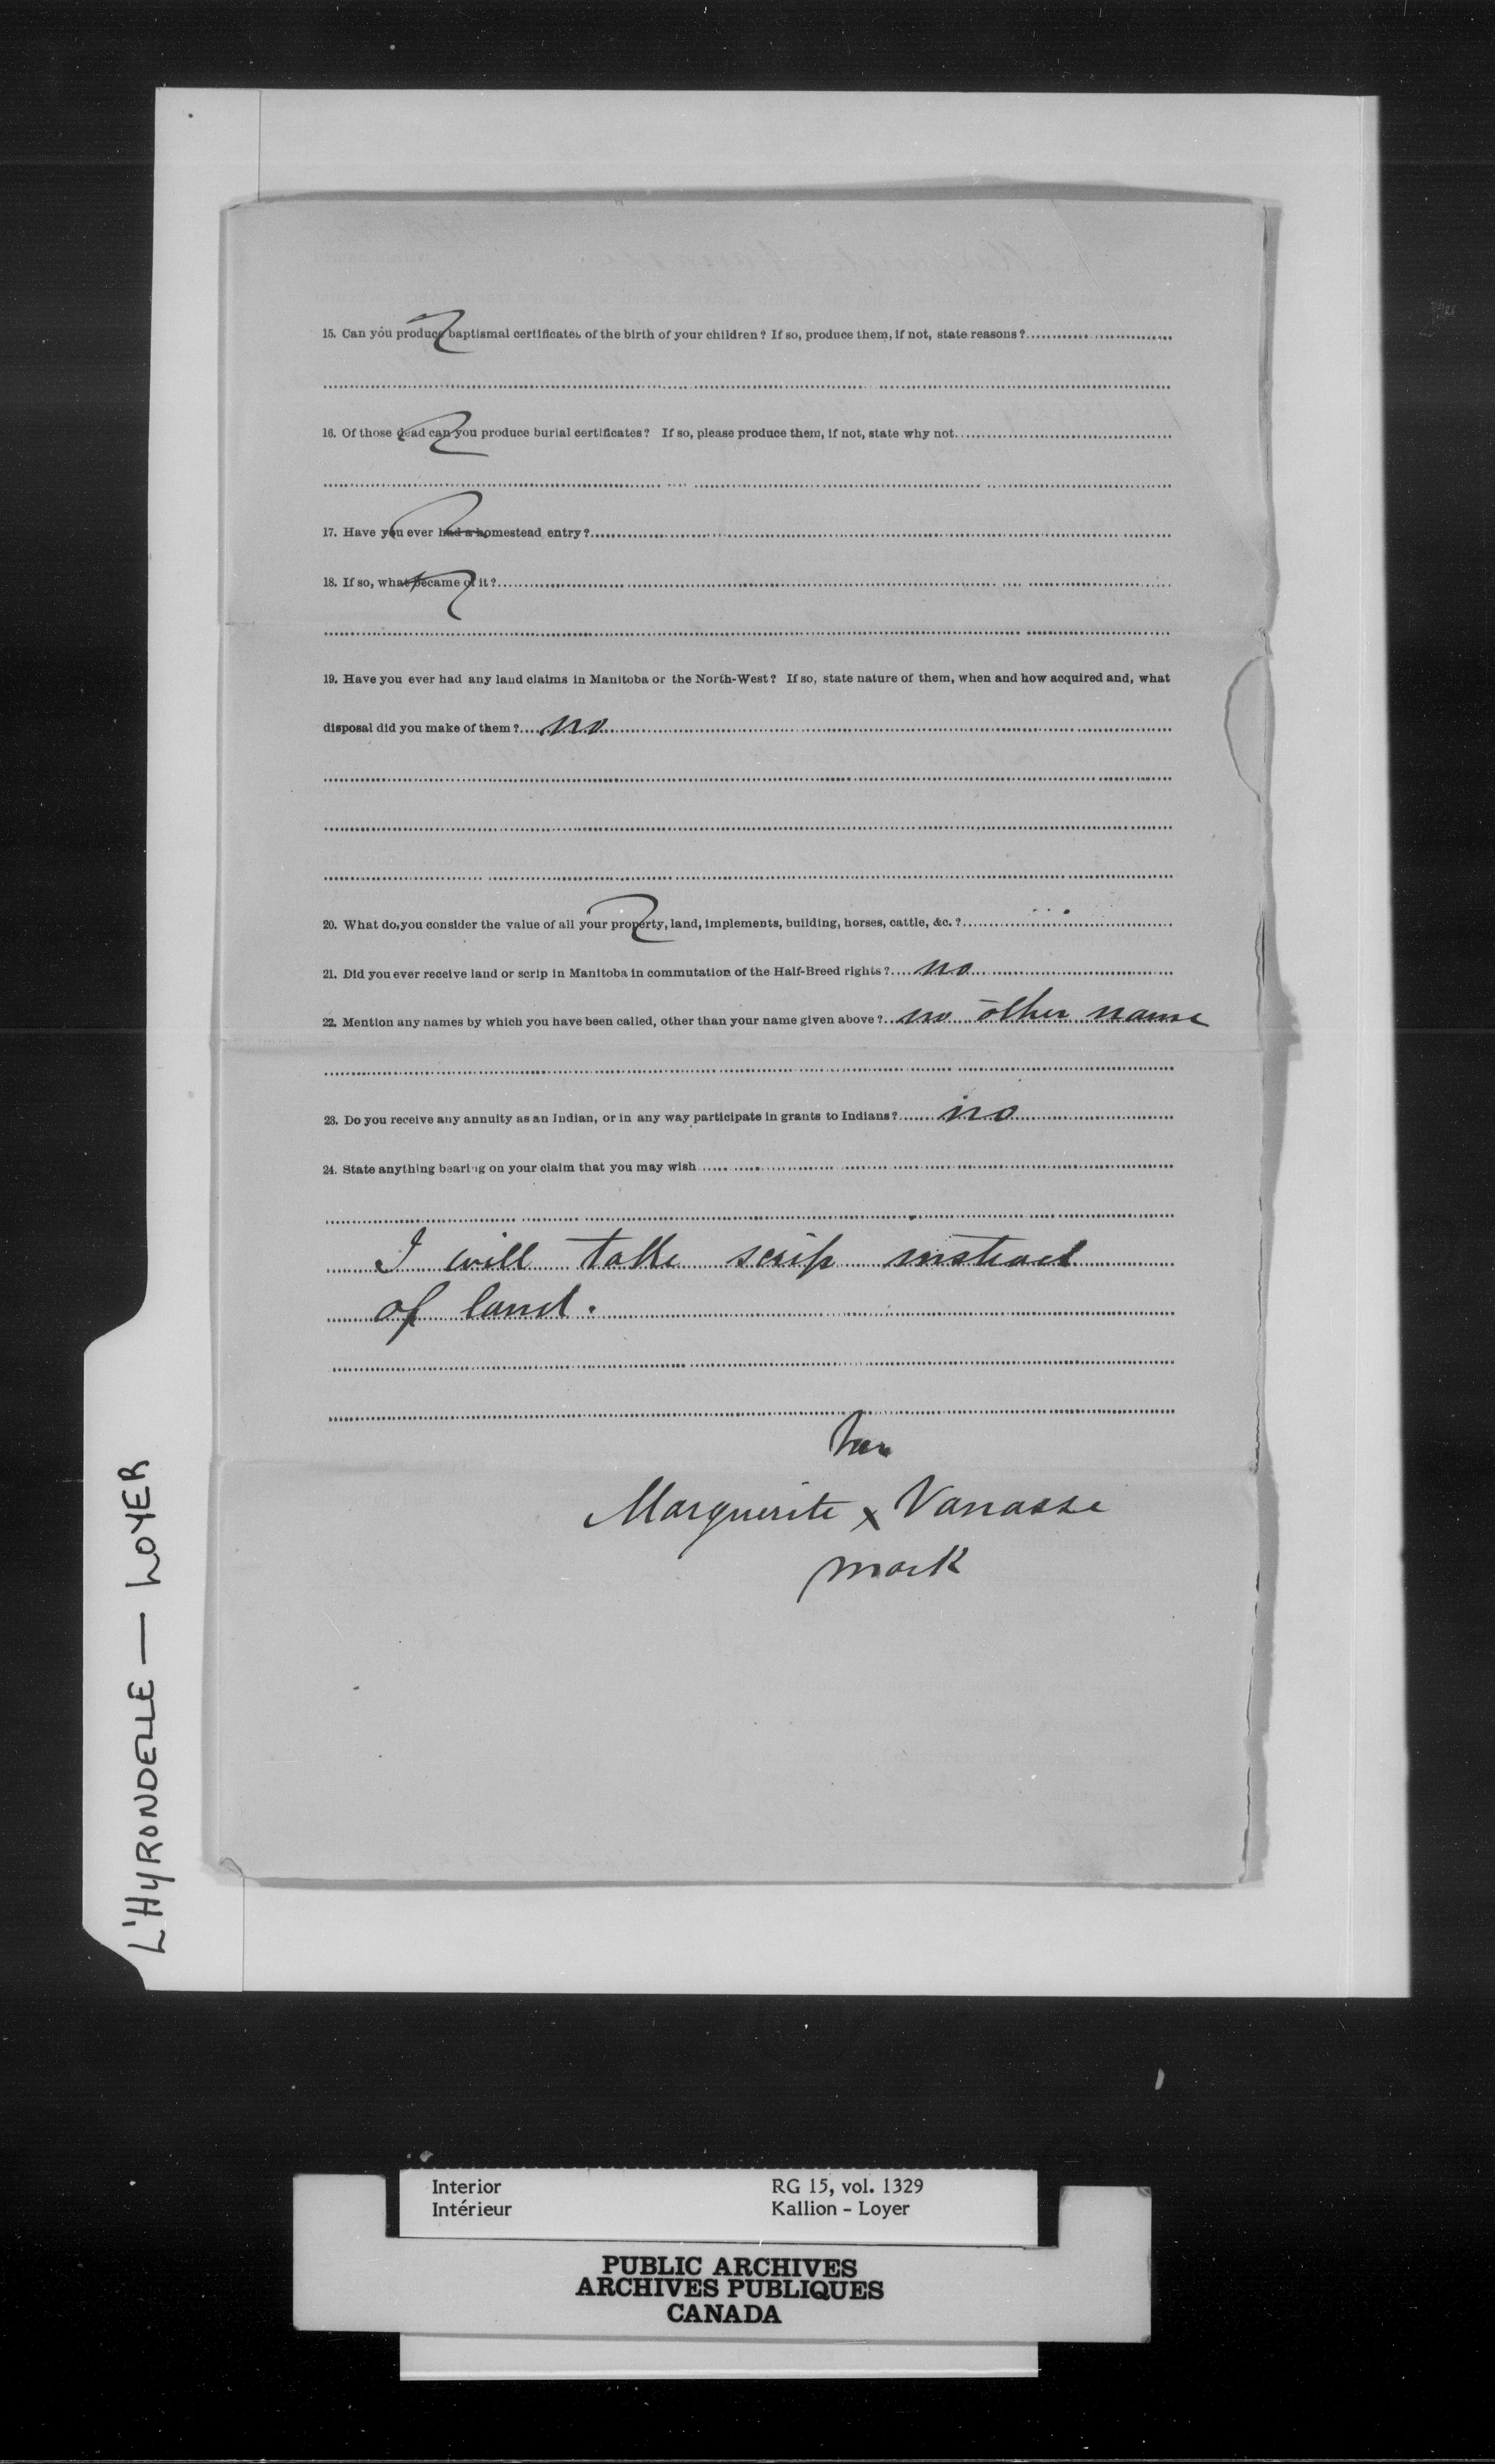 15. Can you produce baptismal certificates of the birth of your children? If so, produce them, if not, state reasons?
16. Of those dead can you produce burial certificates? If so, please produce them, if not, state why not
17. Have you ever had a homestead entry?
18. If so, what became of it?
19. Have you ever had any land claims in Manitoba or the North-West? If so, state nature of them, when and how acquired and, what
disposal did you make of them? no
20. What do you consider the value of all your property, land, implements, building, horses, cattle, &c.?
21. Did you ever receive land or scrip in Manitoba in commutation of the Half-Breed rights? no
22. Mention any names by which you have been called, other than your name given above? no other name
23. Do you receive any annuity as an Indian, or in any way participate in grants to Indians? no
24. State anything bearing on your claim that you may wish
I will take scrip instead
of land.
her
Marguerite x Vanasse
mark
L'HYRONDELLE — LOYER
Interior RG 15, vol. 1329
Intérieur Kallion - Loyer
PUBLIC ARCHIVES
ARCHIVES PUBLIQUES
CANADA